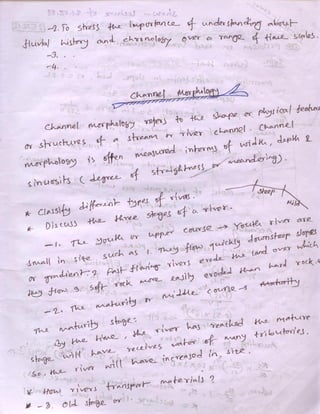 -2. To stress the importance of understanding about
fluvial history and chronology over a range of time scales.
-3. . .
-4. . .
Channel Morphology
Channel morphology refers to the shape or physical feature
or structures of a stream or river channel. Channel
morphology is often measured interms of width, depth &
sinuosity (degree of straightness or meandering).
steep
* Classify different types of rivers.
* Discuss the three stages of a river.
-1. The youth or upper course → Youth river are
small in size such as 1. They flow quickly downsteep slopes
or gradient. 2. Fast flowing rivers erode the land over which
they flow 3. Soft rock more easily eroded than hard rock.
-2. The maturity or middle course →
The maturity stage:
By the time, the river has reached the mature
stage will have receives water of many tributories.
So, the river will have increased in, size.
* How rivers transport materials?
-3. Old stage or